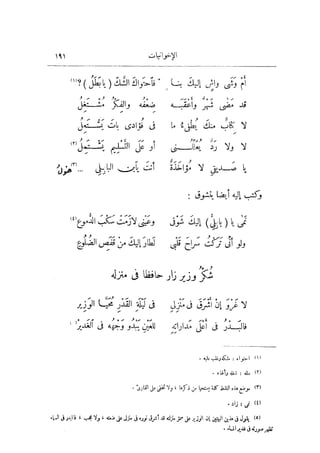 الإخوانيات ١٩١
أم وشى واش إليك بنا * فاحتواك الشك (يا بطل)؟(١)
قد مضى شهر وأعقبه ضعفه والفكر مشتغل
لا كتاب منك يطفئ ما في فؤادي بات يشتعل
لا ولا رد يعللني أو على التسليم يشتمل(٢)
يا صديقي لا مؤاخذة أنت يا بن البابلي ...(٣)
وكتب إليه أيضا يتشوق :
نمى يا (بابلي) إليك شوقي وعيني لازمت سكب الدموع(٤)
ولو أني تركت سراح قلبي لطار إليك من قفص الضلوع
شكر وزير زار حافظا في منزله
لا غرو إن أشرق في منزلي في ليلة القدر محيا الوزير
فالبدر في أعلى مداراته للعين يبدو وجهه في الغدير(٥)
(١) احتواه :
(٢)
(٣) موضع هذه النقط كلمة يستحيا من ذكرها ، ولا تخفى على القارئ .
(٤) نمى : زاد .
(٥) يقول في هذين البيتين إن الوزير على منزلته قد أشرق نوره في منزلي على ضعته ، ولا عجب ، فالبدر في السماء
تظهر صورته في غدير الماء .